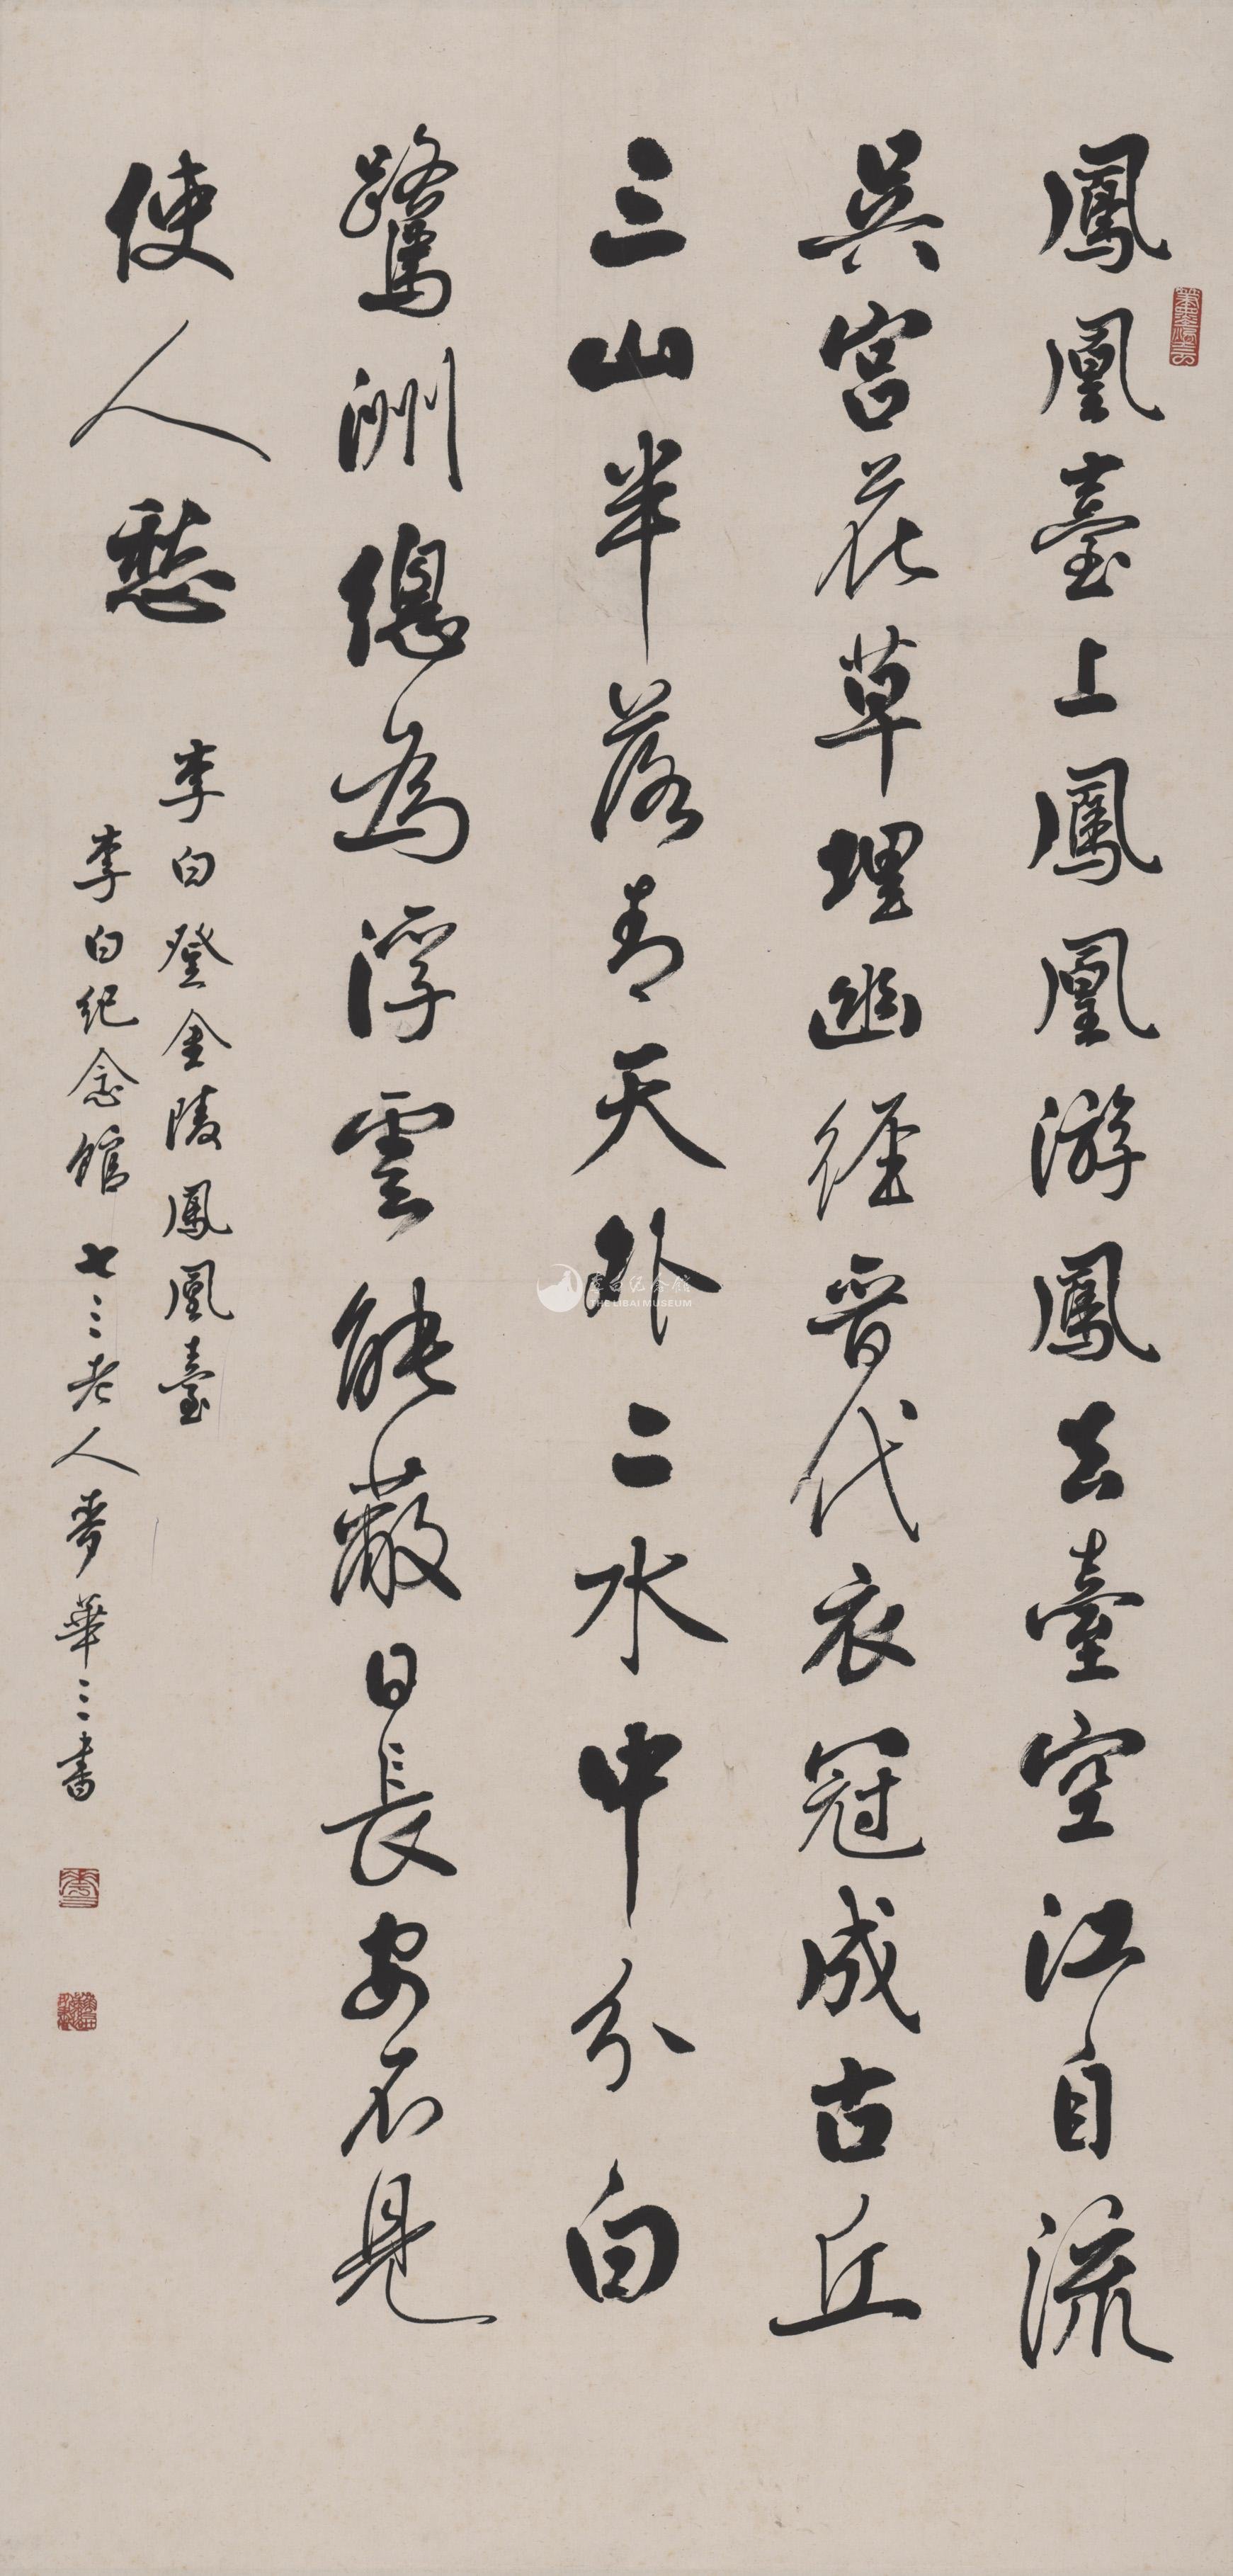 鳳凰臺上鳳凰游鳳去臺空江自流
吳宮花草埋幽徑晉代衣冠成古丘
三山半落青天外二水中分白
鷺洲總為浮雲能蔽日長安不見
使人愁
李白登金陵鳳凰臺
李白纪念館 七三老人麥華三書
李白纪念館
THE LIBAI MUSEUM